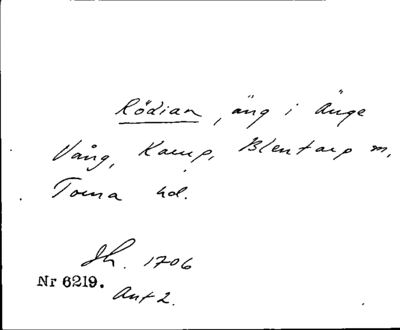 Rödian, äng i Änge
Vång, Karup, Blentarp m,
Torna hd.
Jh. 1706
Nr 6219.
Ant 2.